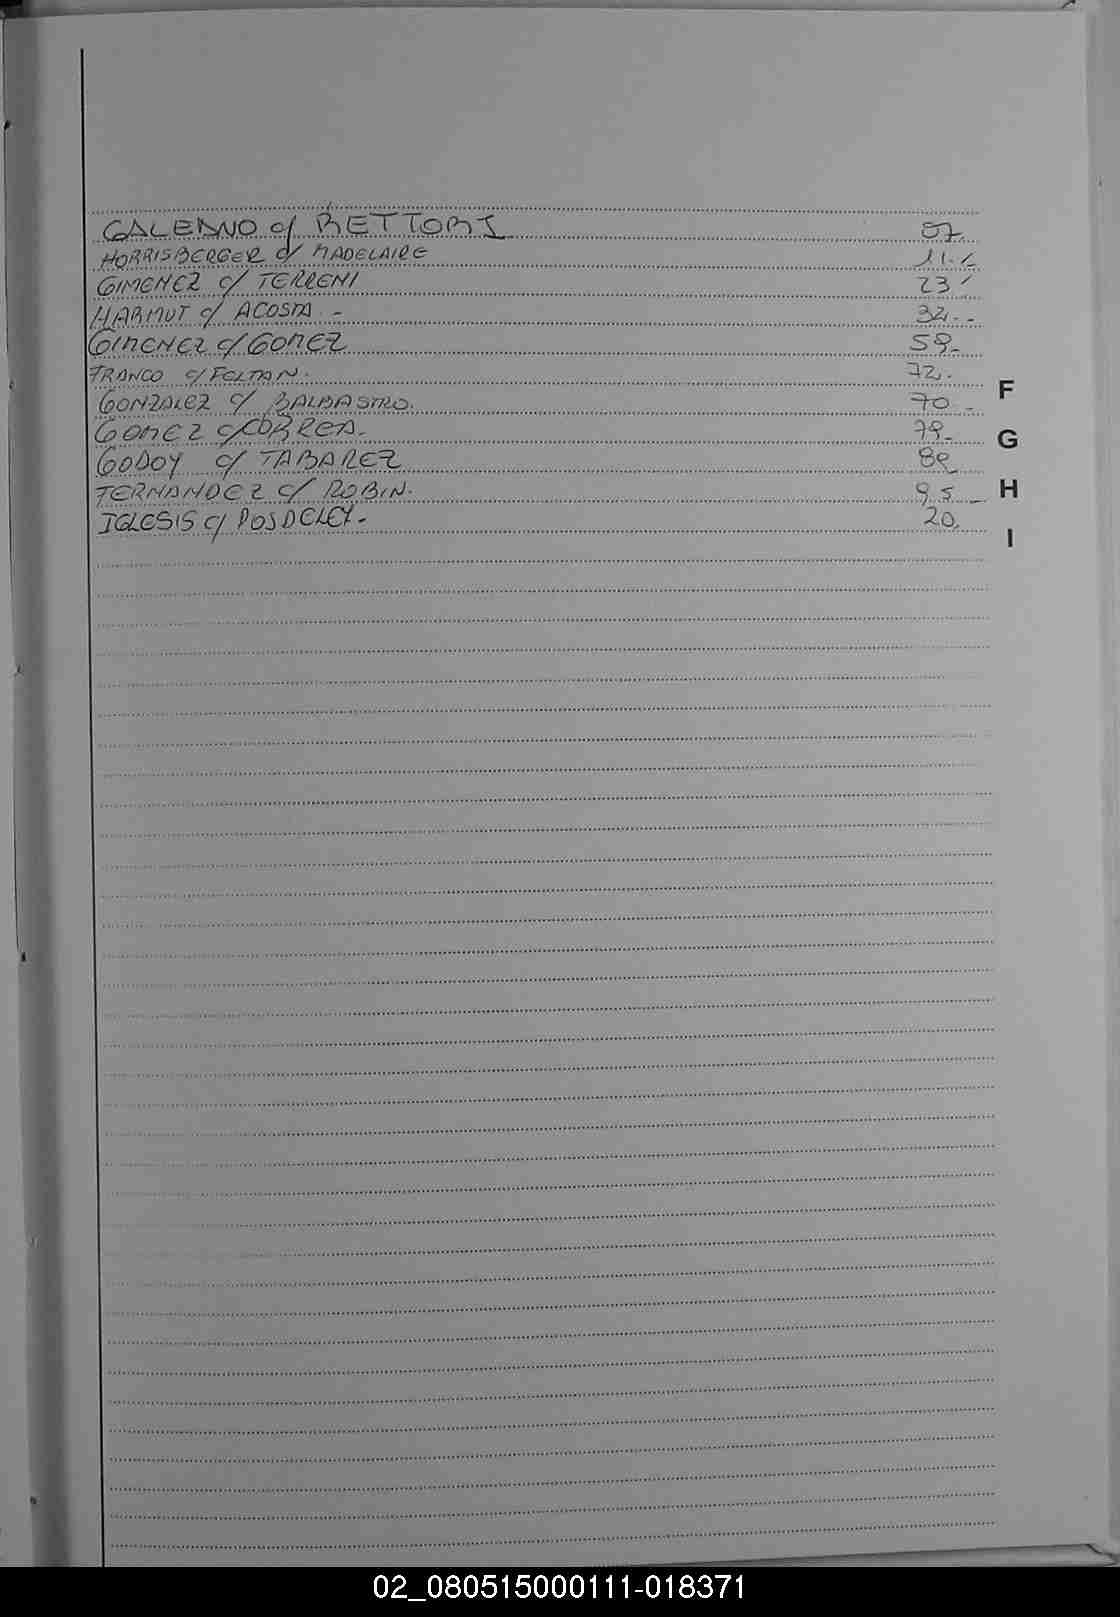 GALEANO c/ RETTORI 07.
HORRISBERGER c/ MADELAIRE 11.-
GIMENEZ c/ TERRENI 23
HARMUT c/ ACOSTA.- 32.-
GIMENEZ c/ GOMEZ 59-
FRANCO c/ FOLTAN. 72.
GONZALEZ c/ BALBASTRO. 70.-
GOMEZ c/ CORREA.- 79-
GODOY c/ TABAREZ
FERNANDEZ c/ ROBIN. 95-
IGLESIS c/ POSDELEY.- 20.
F
G
H
I
02_080515000111-018371